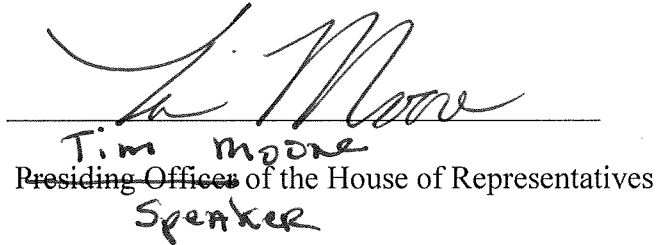 Tim Moore
Tim Moore
Presiding Officer of the House of Representatives
Speaker